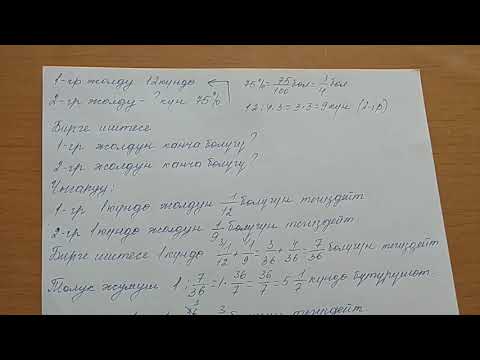 1-гр жолду 12 күндө
2-гр жолду - ? күн 75%
75% = 75/100 бөл = 3/4 бөл
12 : 4 · 3 = 3 · 3 = 9 күн (2-гр)
Бирге иштесе
1-гр жолдун канча бөлүгү?
2-гр жолдун канча бөлүгү?
Чыгаруу:
1-гр 1 күндө жолдун 1/12 бөлүгүн тегиздейт
2-гр 1 күндө жолдун 1/9 бөлүгүн тегиздейт.
Бирге иштесе 1 күндө 1/12 + 1/9 = 3/36 + 4/36 = 7/36 бөлүгүн тегиздейт
Толук жумуш 1 : 7/36 = 1 · 36/7 = 36/7 = 5 1/7 күндө бүтүрүшөт.